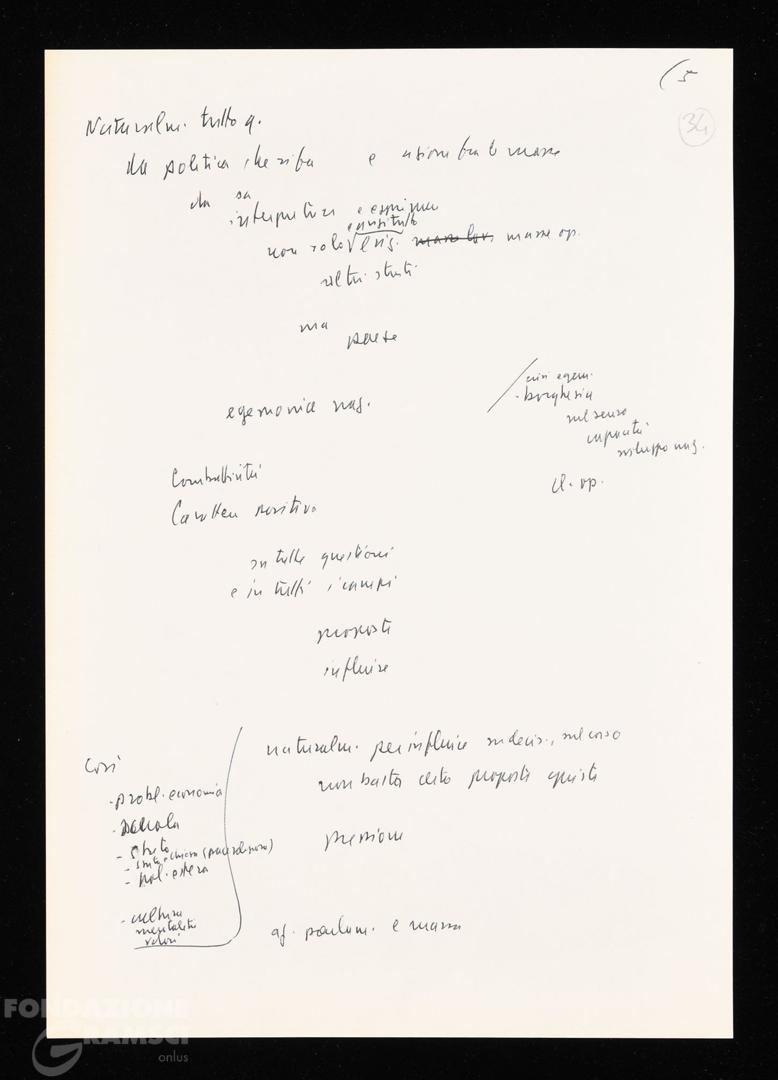 (5
34
Naturalm. tutto q.
da politica che si fa e azione tra le masse
da sa
interpretare e esprimere
e anzitutto
non solo esig. masse op.
altri strati
ma
paese
egemonia naz.
crisi egem.
- borghesia
nel senso
capacità
sviluppo naz.
cl. op.
Combattività
Carattere positivo
su tutte questioni
e in tutti i campi
proposte
influire
naturalm. per influire su decis., sul corso
Così
non basta certo proposte giuste
- probl. economia
- scuola
- Stato
- Stato e Chiesa
- pol. estera
pressione
- cultura
mentalità
valori
az. parlam. e massa
FONDAZIONE
GRAMSCI
onlus